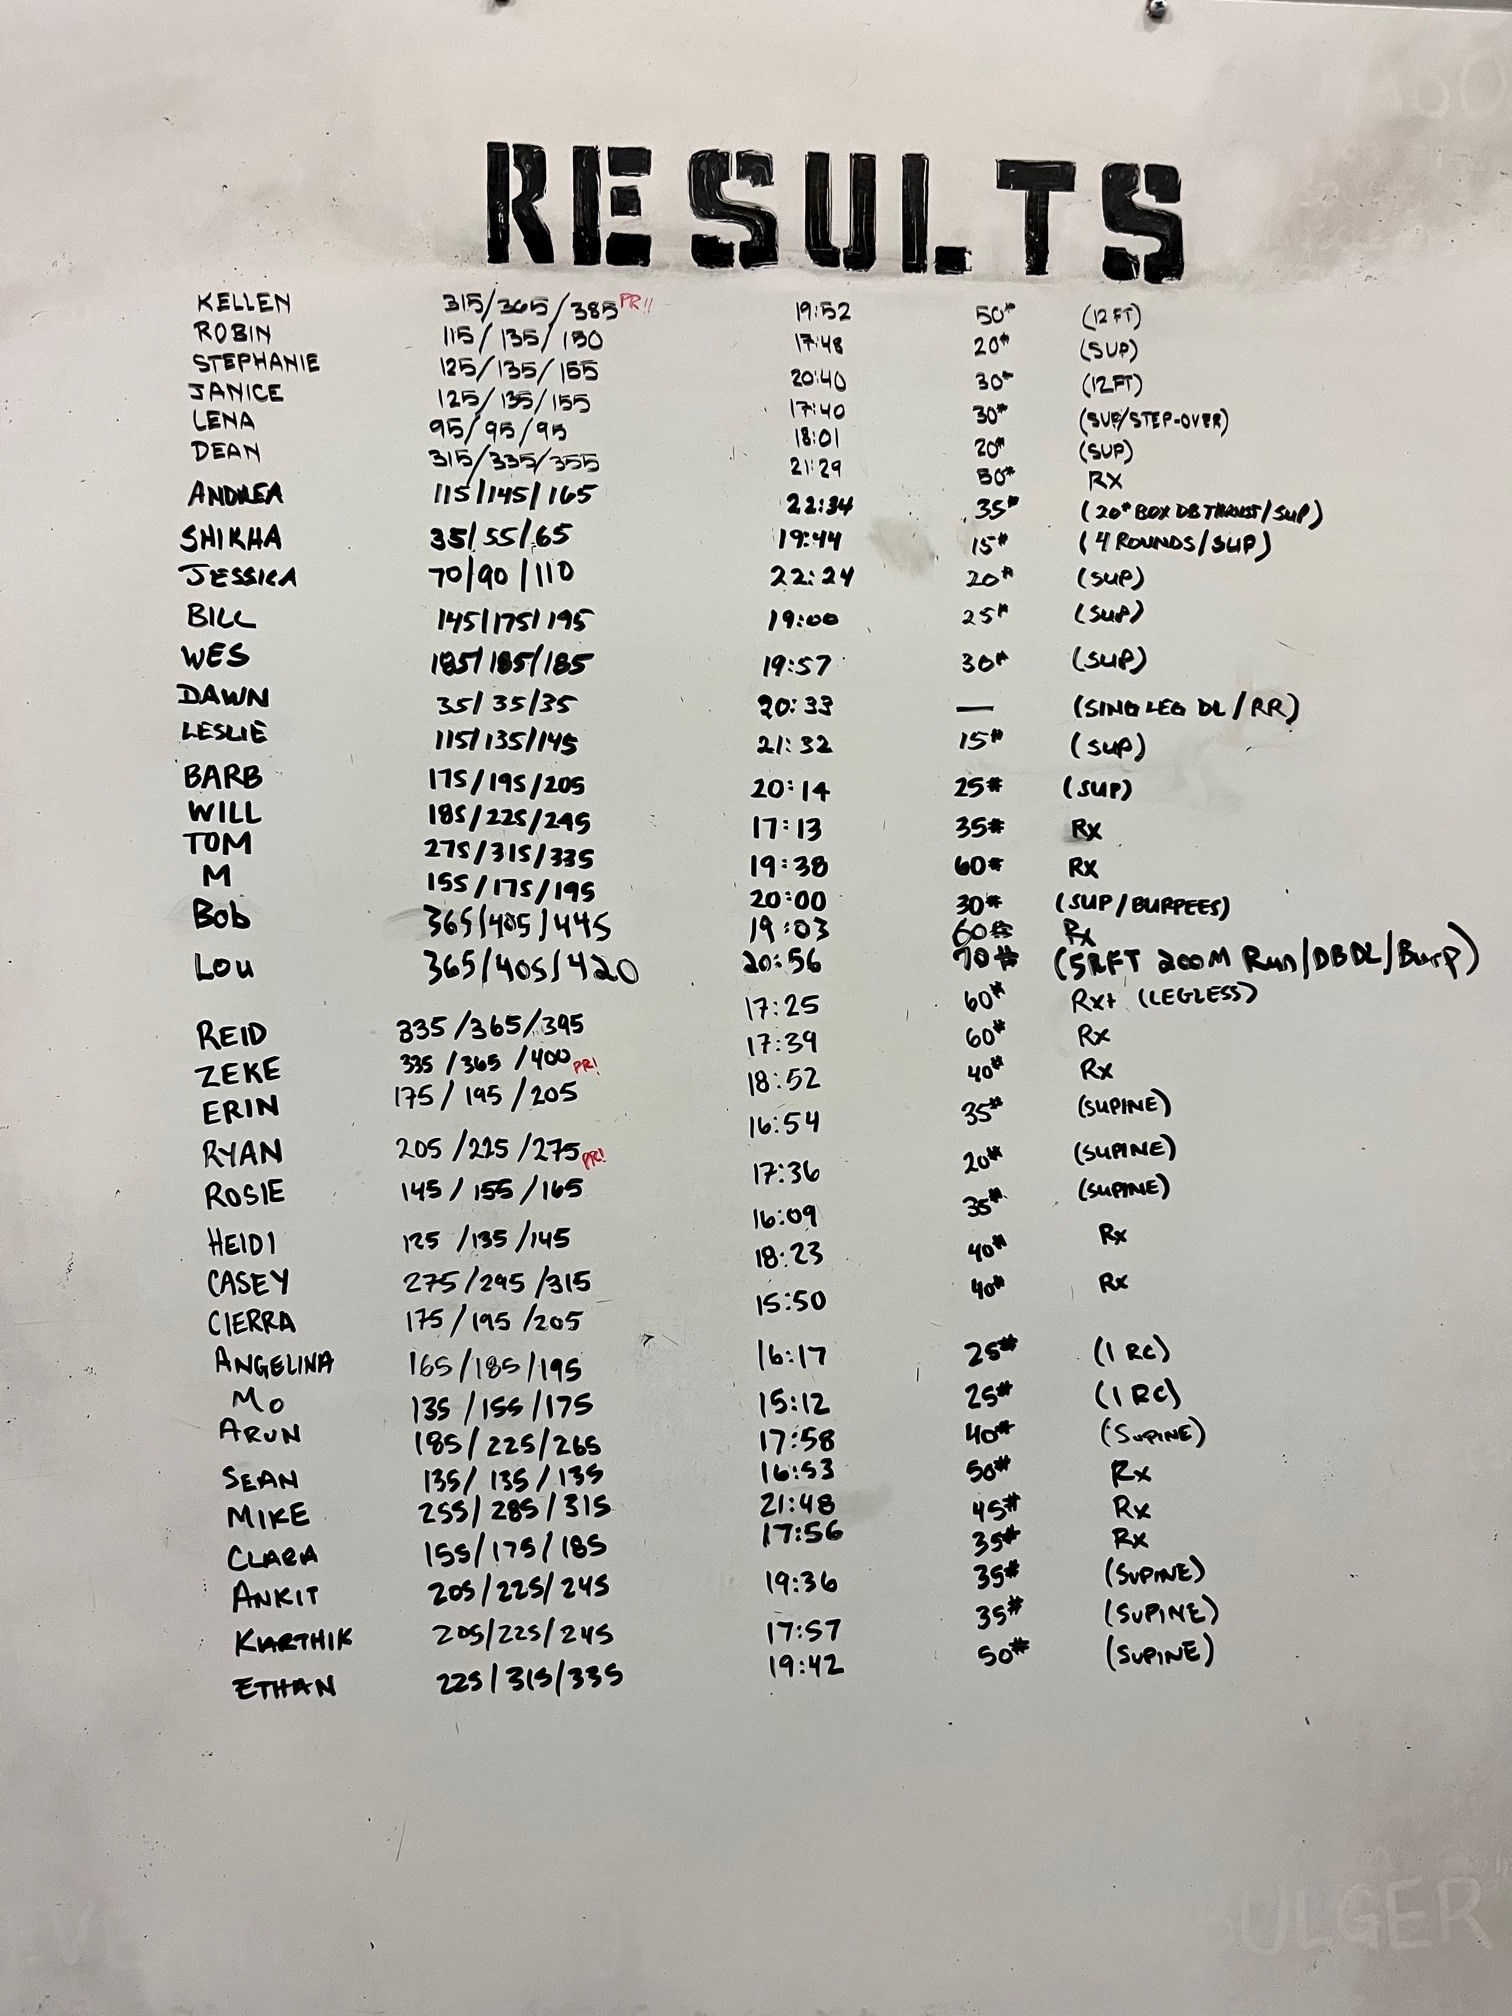 RESULTS
KELLEN 315/365/385 PR!! 19:52 50# (12 FT)
ROBIN 115/135/150 17:48 20# (SUP)
STEPHANIE 125/135/155 20:40 30# (12FT)
JANICE 125/135/155 17:40 30# (SUP/STEP-OVER)
LENA 95/95/95 18:01 20# (SUP)
DEAN 315/335/355 21:29 50# RX
ANDREA 115/145/165 22:34 35# (20# BOX DB THRUST/SUP)
SHIKHA 35/55/65 19:44 15# (4 ROUNDS/SUP)
JESSICA 70/90/110 22:24 20# (SUP)
BILL 145/175/195 19:00 25# (SUP)
WES 185/185/185 19:57 30# (SUP)
DAWN 35/35/35 20:33 — (SING LEG DL/RR)
LESLIE 115/135/145 21:32 15# (SUP)
BARB 175/195/205 20:14 25# (SUP)
WILL 185/225/245 17:13 35# Rx
TOM 275/315/335 19:38 60# Rx
M 155/175/195 20:00 30# (SUP/BURPEES)
Bob 365/405/445 19:03 60# Rx
Lou 365/405/420 20:56 70# (5RFT 200M Run/DBDL/Burp)
REID 335/365/395 17:25 60# Rx+ (LEGLESS)
ZEKE 335/365/400 PR! 17:39 60# Rx
ERIN 175/195/205 18:52 40# Rx
RYAN 205/225/275 PR! 16:54 35# (SUPINE)
ROSIE 145/155/165 17:36 20# (SUPINE)
HEIDI 125/135/145 16:09 35# (SUPINE)
CASEY 275/295/315 18:23 40# Rx
CIERRA 175/195/205 15:50 40# Rx
ANGELINA 165/185/195 16:17 25# (1 RC)
MO 135/155/175 15:12 25# (1 RC)
ARUN 185/225/265 17:58 40# (SUPINE)
SEAN 135/135/135 16:53 50# Rx
MIKE 255/285/315 21:48 45# Rx
CLARA 155/175/185 17:56 35# Rx
ANKIT 205/225/245 19:36 35# (SUPINE)
KARTHIK 205/225/245 17:57 35# (SUPINE)
ETHAN 225/315/335 19:42 50# (SUPINE)
BULGER